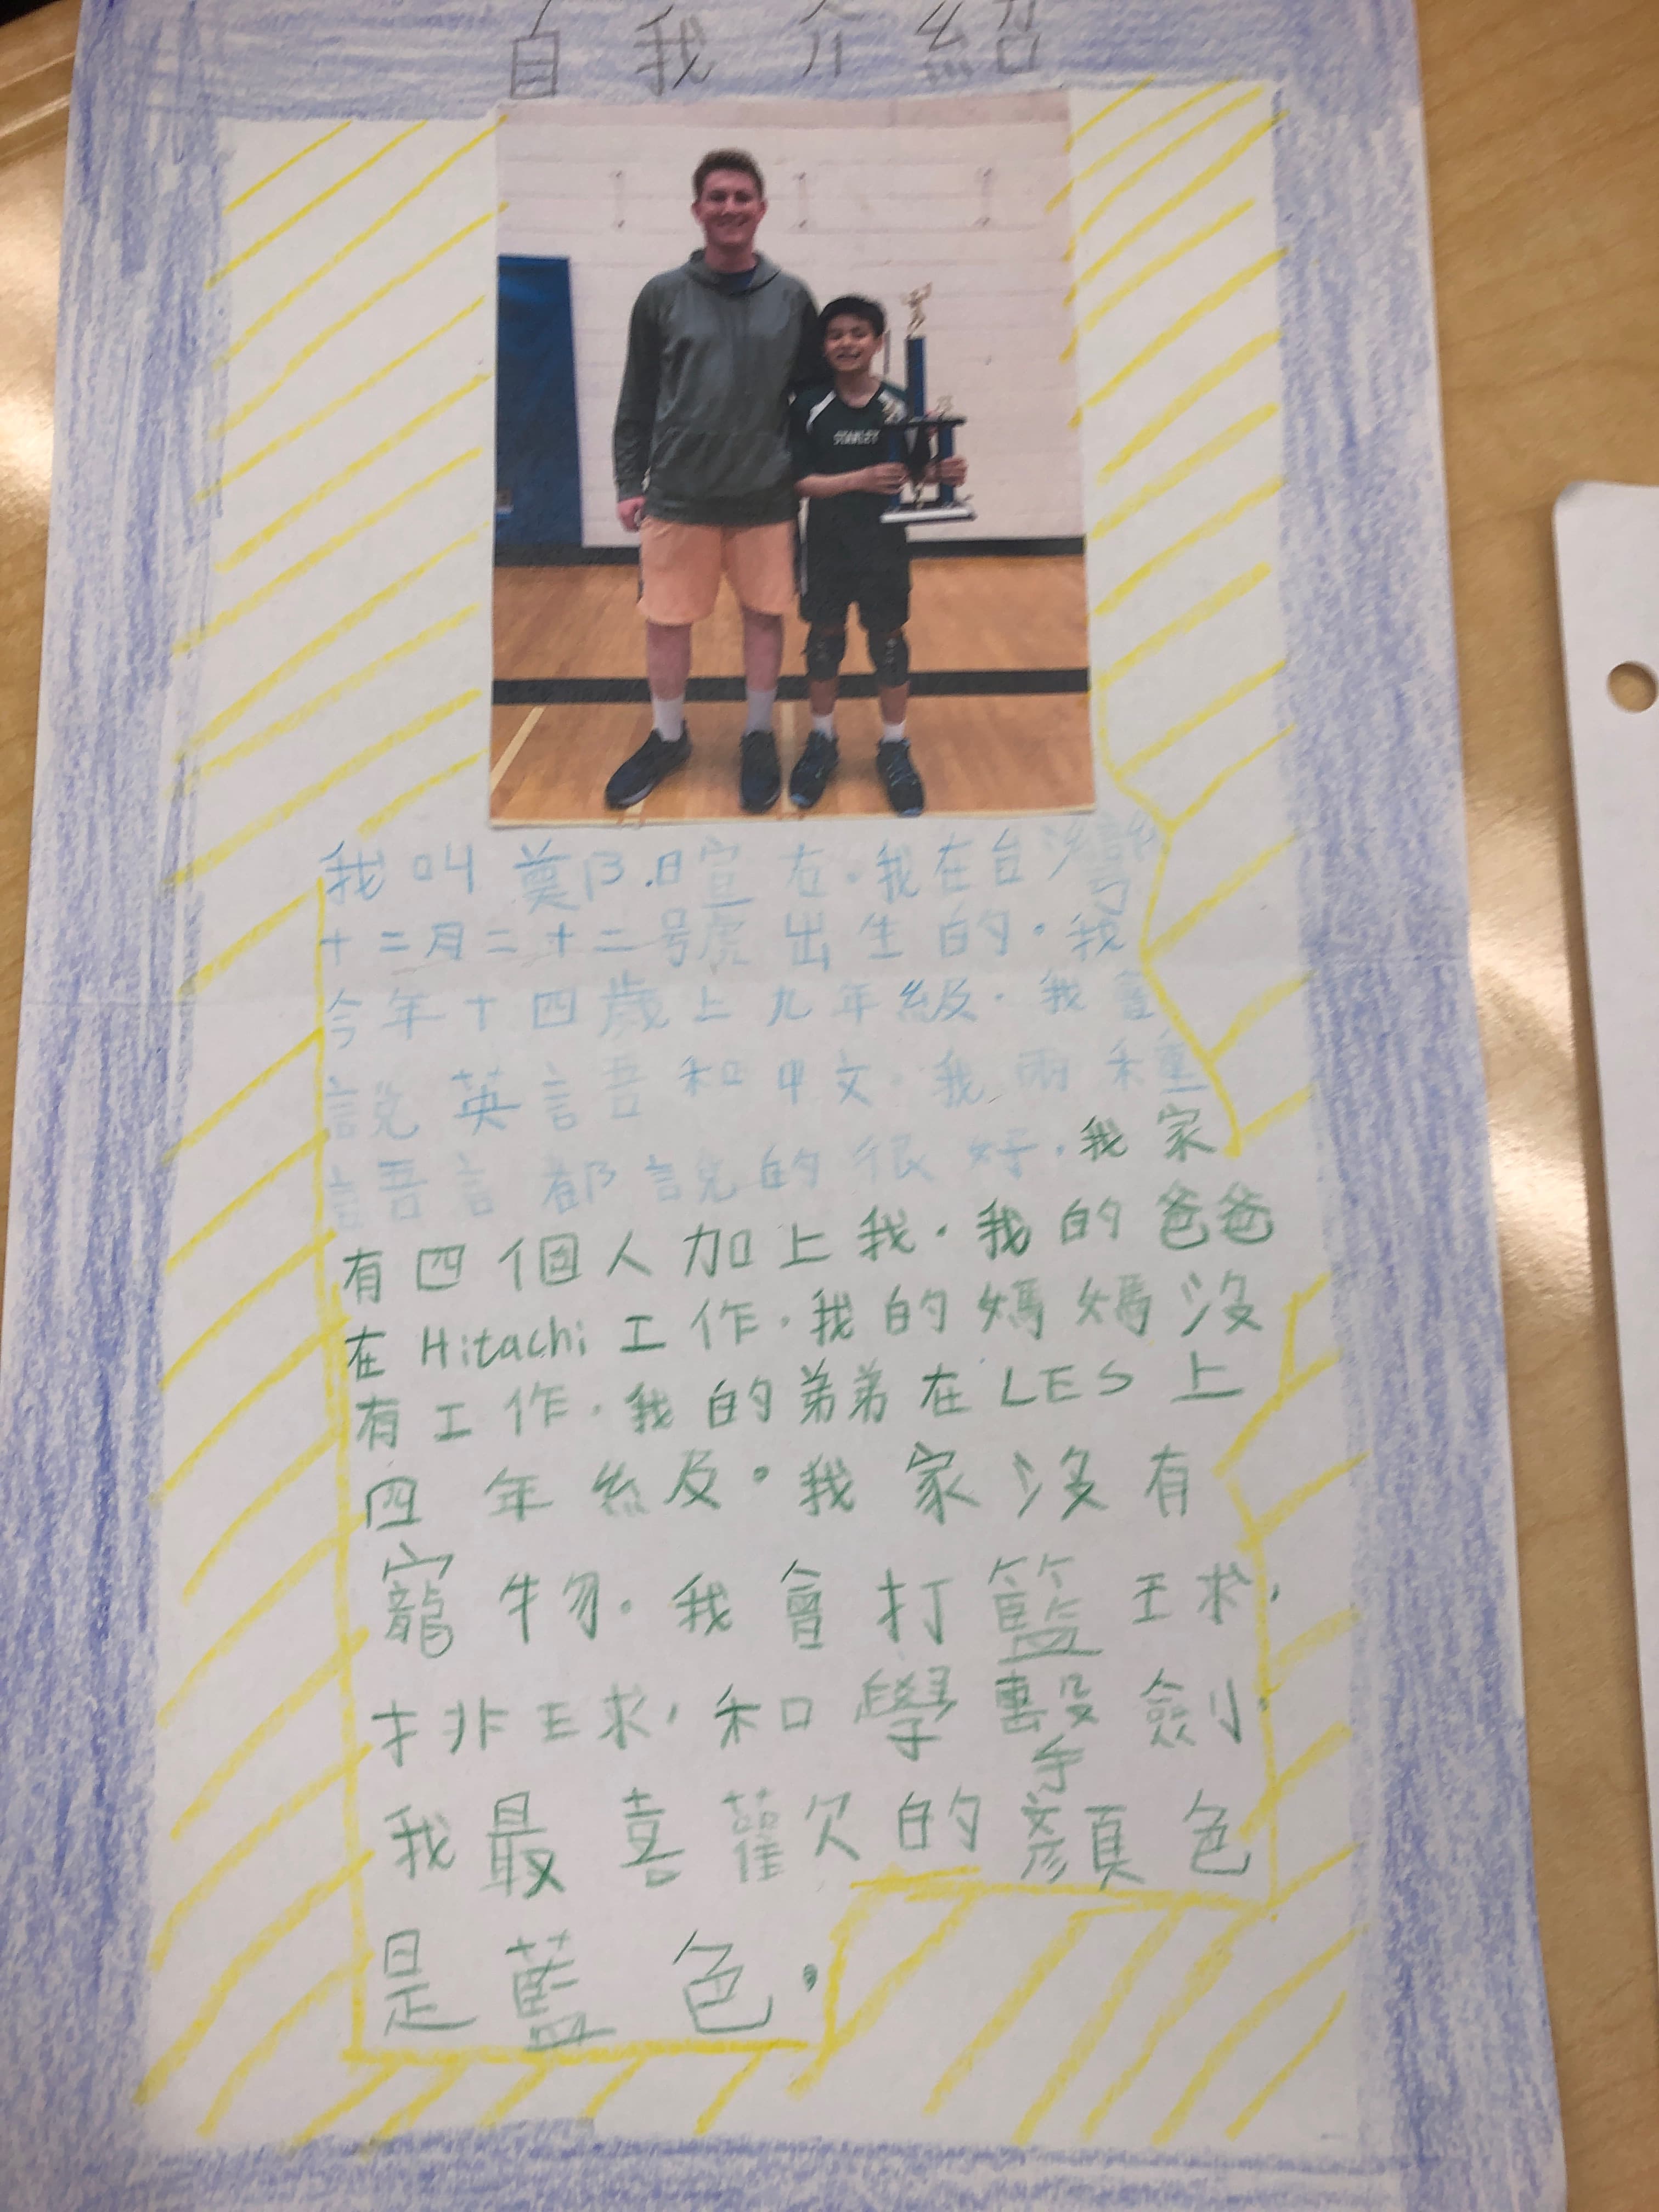 自我介紹
STANLEY
我叫鄭暄右.我在台灣
十二月二十二號出生的.我
今年十四歲上九年級.我會
說英語和中文.我兩種
語言都說的很好.我家
有四個人加上我.我的爸爸
在Hitachi工作.我的媽媽沒
有工作.我的弟弟在LES上
四年級.我家沒有
寵物.我會打籃球,
排球,和學擊劍.
我最喜歡的顏色
是藍色.